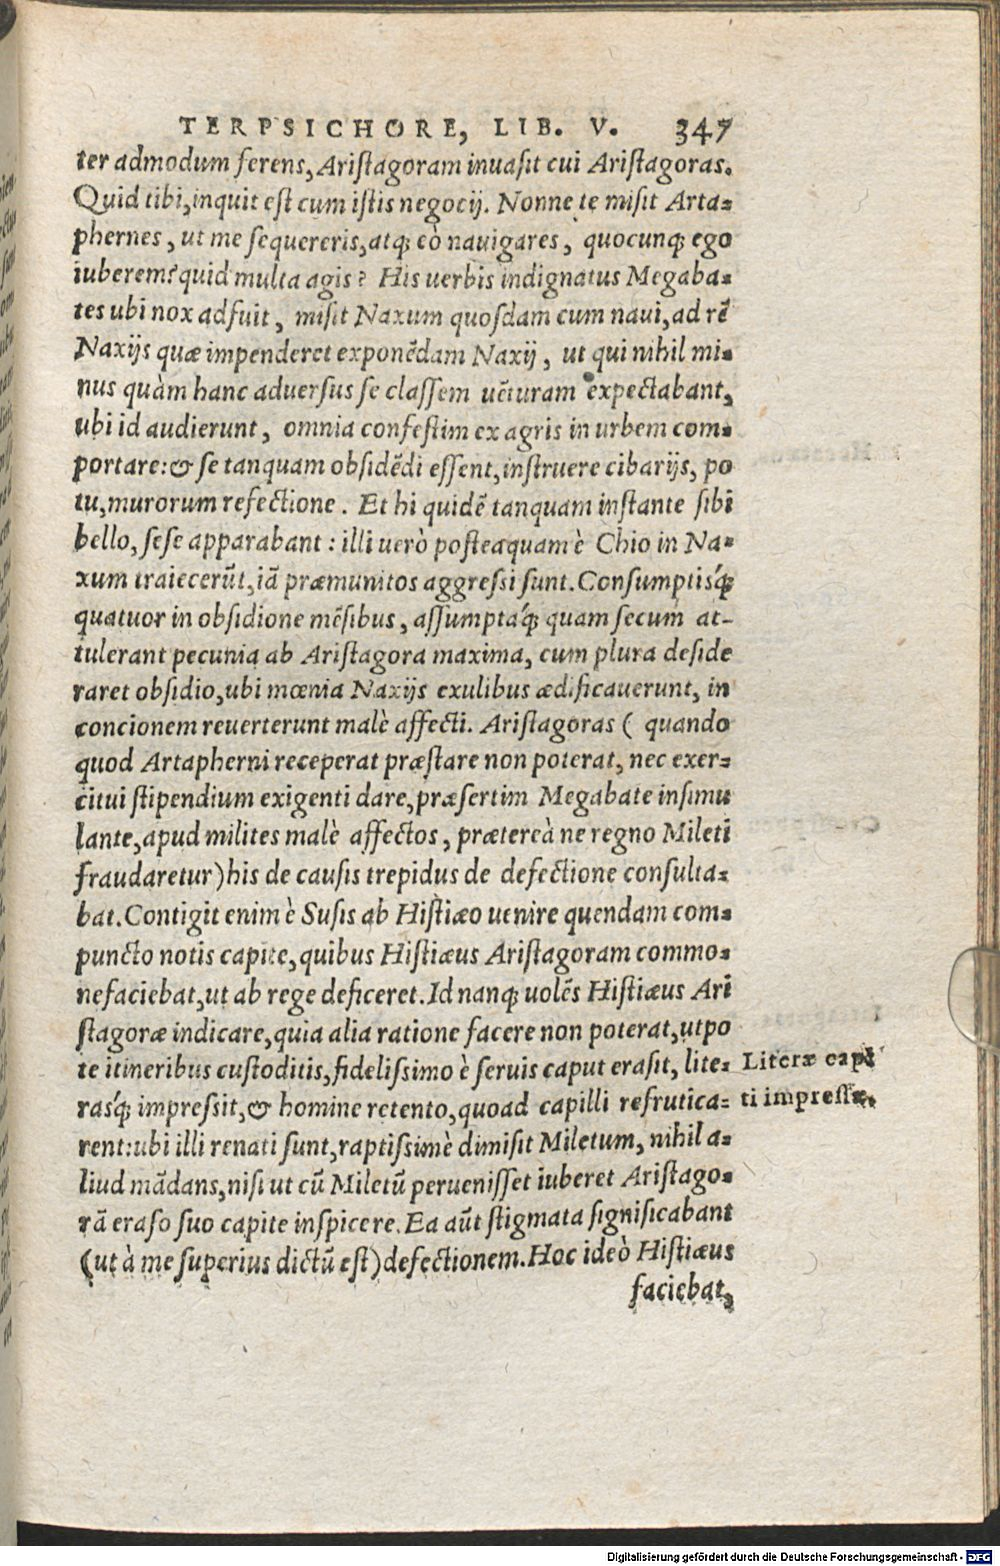 TERPSICHORE, LIB. V. 347
ter admodum ferens, Aristagoram inuasit cui Aristagoras.
Quid tibi, inquit est cum istis negocij. Nonne te misit Arta-
phernes, ut me sequereris, atq; eò nauigares, quocunq; ego
iuberem? quid multa agis? His uerbis indignatus Megaba-
tes ubi nox adfuit, misit Naxum quosdam cum naui, ad rē
Naxijs quæ impenderet exponēdam Naxij, ut qui nihil mi-
nus quàm hanc aduersus se classem uēturam expectabant,
ubi id audierunt, omnia confestim ex agris in urbem com-
portare: & se tanquam obsidēdi essent, instruere cibarijs, po
tu, murorum refectione. Et hi quidē tanquam instante sibi
bello, sese apparabant: illi uerò posteaquam è Chio in Na-
xum traiecerūt, iā præmunitos aggressi sunt. Consumptisq́;
quatuor in obsidione mēsibus, assumptaq́; quam secum at-
tulerant pecunia ab Aristagora maxima, cum plura deside
raret obsidio, ubi mœnia Naxijs exulibus ædificauerunt, in
concionem reuerterunt malè affecti. Aristagoras ( quando
quod Artapherni receperat præstare non poterat, nec exer-
citui stipendium exigenti dare, præsertim Megabate insimu
lante, apud milites malè affectos, prætereà ne regno Mileti
fraudaretur) his de causis trepidus de defectione consulta-
bat. Contigit enim è Susis ab Histiæo uenire quendam com-
puncto notis capite, quibus Histiæus Aristagoram commo-
nefaciebat, ut ab rege deficeret. Id nanq; uolēs Histiæus Ari
stagoræ indicare, quia alia ratione facere non poterat, utpo
te itineribus custoditis, fidelissimo è seruis caput erasit, lite-
rasq́; impressit, & homine retento, quoad capilli refrutica-
rent: ubi illi renati sunt, raptissimè dimisit Miletum, nihil a-
liud mādans, nisi ut cū Miletū peruenisset iuberet Aristago-
rā eraso suo capite inspicere. Ea aūt stigmata significabant
(ut à me superius dictū est) defectionem. Hoc ideò Histiæus
faciebat,
Literæ capi
ti impressæ.
Digitalisierung gefördert durch die Deutsche Forschungsgemeinschaft - DFG